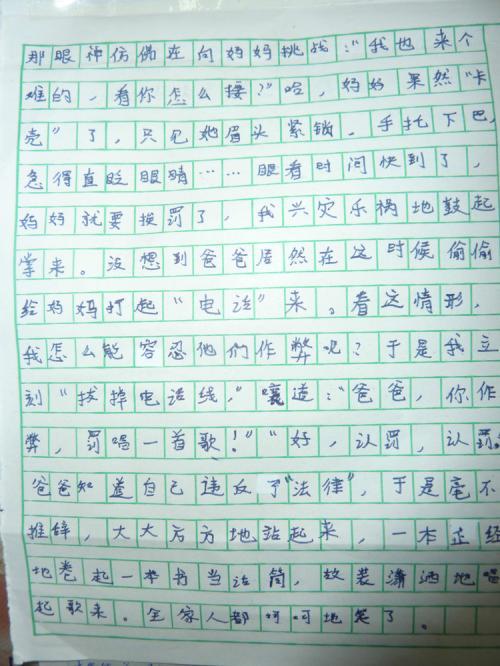 那眼神仿佛在向妈妈挑战：“我也来个
难的，看你怎么接？”哈，妈妈果然“卡
壳”了，只见她眉头紧锁，手托下巴，
急得直眨眼睛……眼看时间快到了，
妈妈就要挨罚了，我兴灾乐祸地鼓起
掌来。没想到爸爸居然在这时候偷偷
给妈妈打起“电话”来。看这情形，
我怎么能容忍他們作弊呢？于是我立
刻“拔掉电话线，”嚷道：“爸爸，你作
弊，罚唱一首歌！”“好，认罚，认罚。
爸爸知道自己违反了“法律”，于是毫不
推辞，大大方方地站起来，一本正经
地卷起一本书当话筒，故装潇洒地唱
起歌来。全家人都呵呵地笑了。